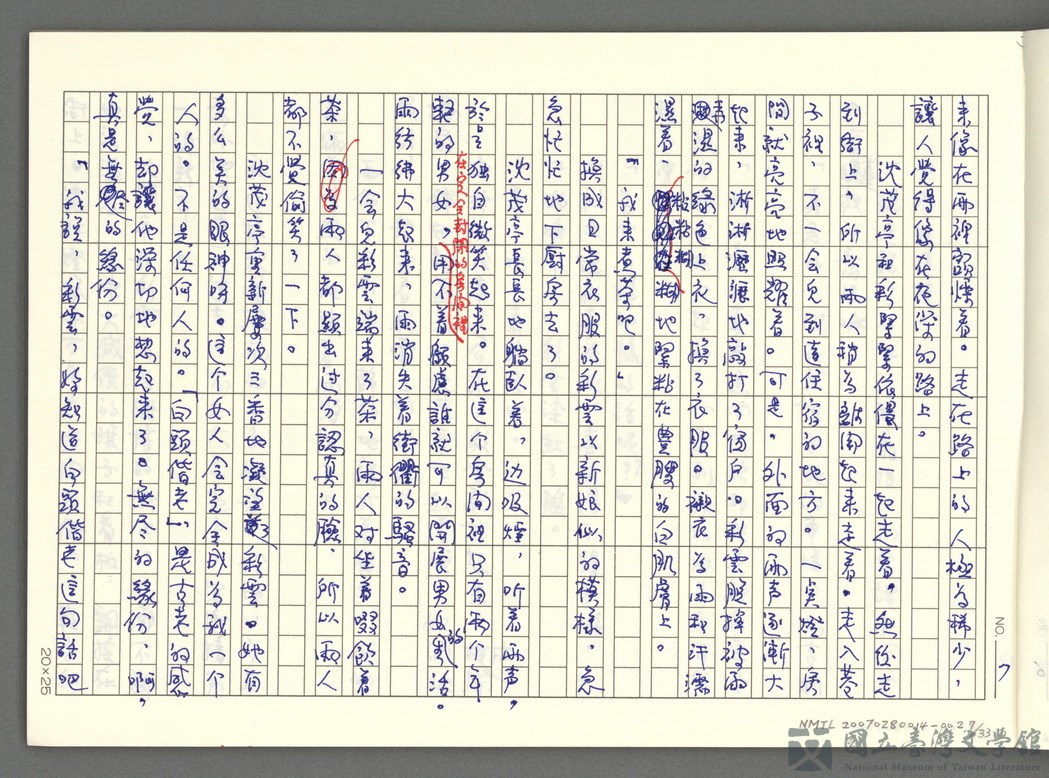 來像在雨裡顫慄着。走在路上的人極為稀少,
讓人覺得像在夜深的路上。
沈茂亭和彩雲緊緊依偎在一起走着。然而走
到街上,所以兩人稍為離開起來走着。走入巷
子裡,不一會兒到達住宿的地方。一點燈,房
間就亮亮地照耀着。可是,外面的雨声逐漸大
起來,淅淅瀝瀝地敲打了窗戶。彩雲脫掉被雨
濕的綠色上衣,換了衣服。襯衣為雨和汗濡
濕着,黏黏糊糊地緊粘在豐腴的白肌膚上。
「我來煮茶吧。」
換成日常衣服的彩雲以新娘似的模樣,急
急忙忙地下廚房去了。
沈茂亭長長地躺臥着,边吸烟,听着雨声,
於是独自微笑起來。在這个房间裡只有兩个年
輕的男女,在完全封閉的房间裡用不着顧慮誰就可以開展男女的生活。
雨彷彿大起來,雨消失着街衢的騷音。
一会兒彩雲端來了茶,兩人对坐着啜飲着
茶,兩人都顯出过分認真的臉,所以兩人
都不覺偷笑了一下。
沈茂亭重新屢次三番地凝望彩雲。她有
多么美的眼神呀。這个女人会完全成為我一个
人的。不是任何人的。「白頭偕老」是古老的感
覺,却讓他深切地想起來了。無尽的緣份,不,啊,
真是無盡的緣份。
「我說,彩雲,妳知道白頭偕老這句話吧
20×25
NO. 7
NMTL 20070280014-0027/33
國立臺灣文學館
National Museum of Taiwan Literature